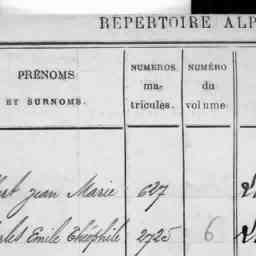 RÉPERTOIRE ALP
PRÉNOMS
ET SURNOMS.
NUMEROS
ma-
tricules.
NUMÉRO
du
volume.
Jean Marie 627
Emile Théophile 2725 6